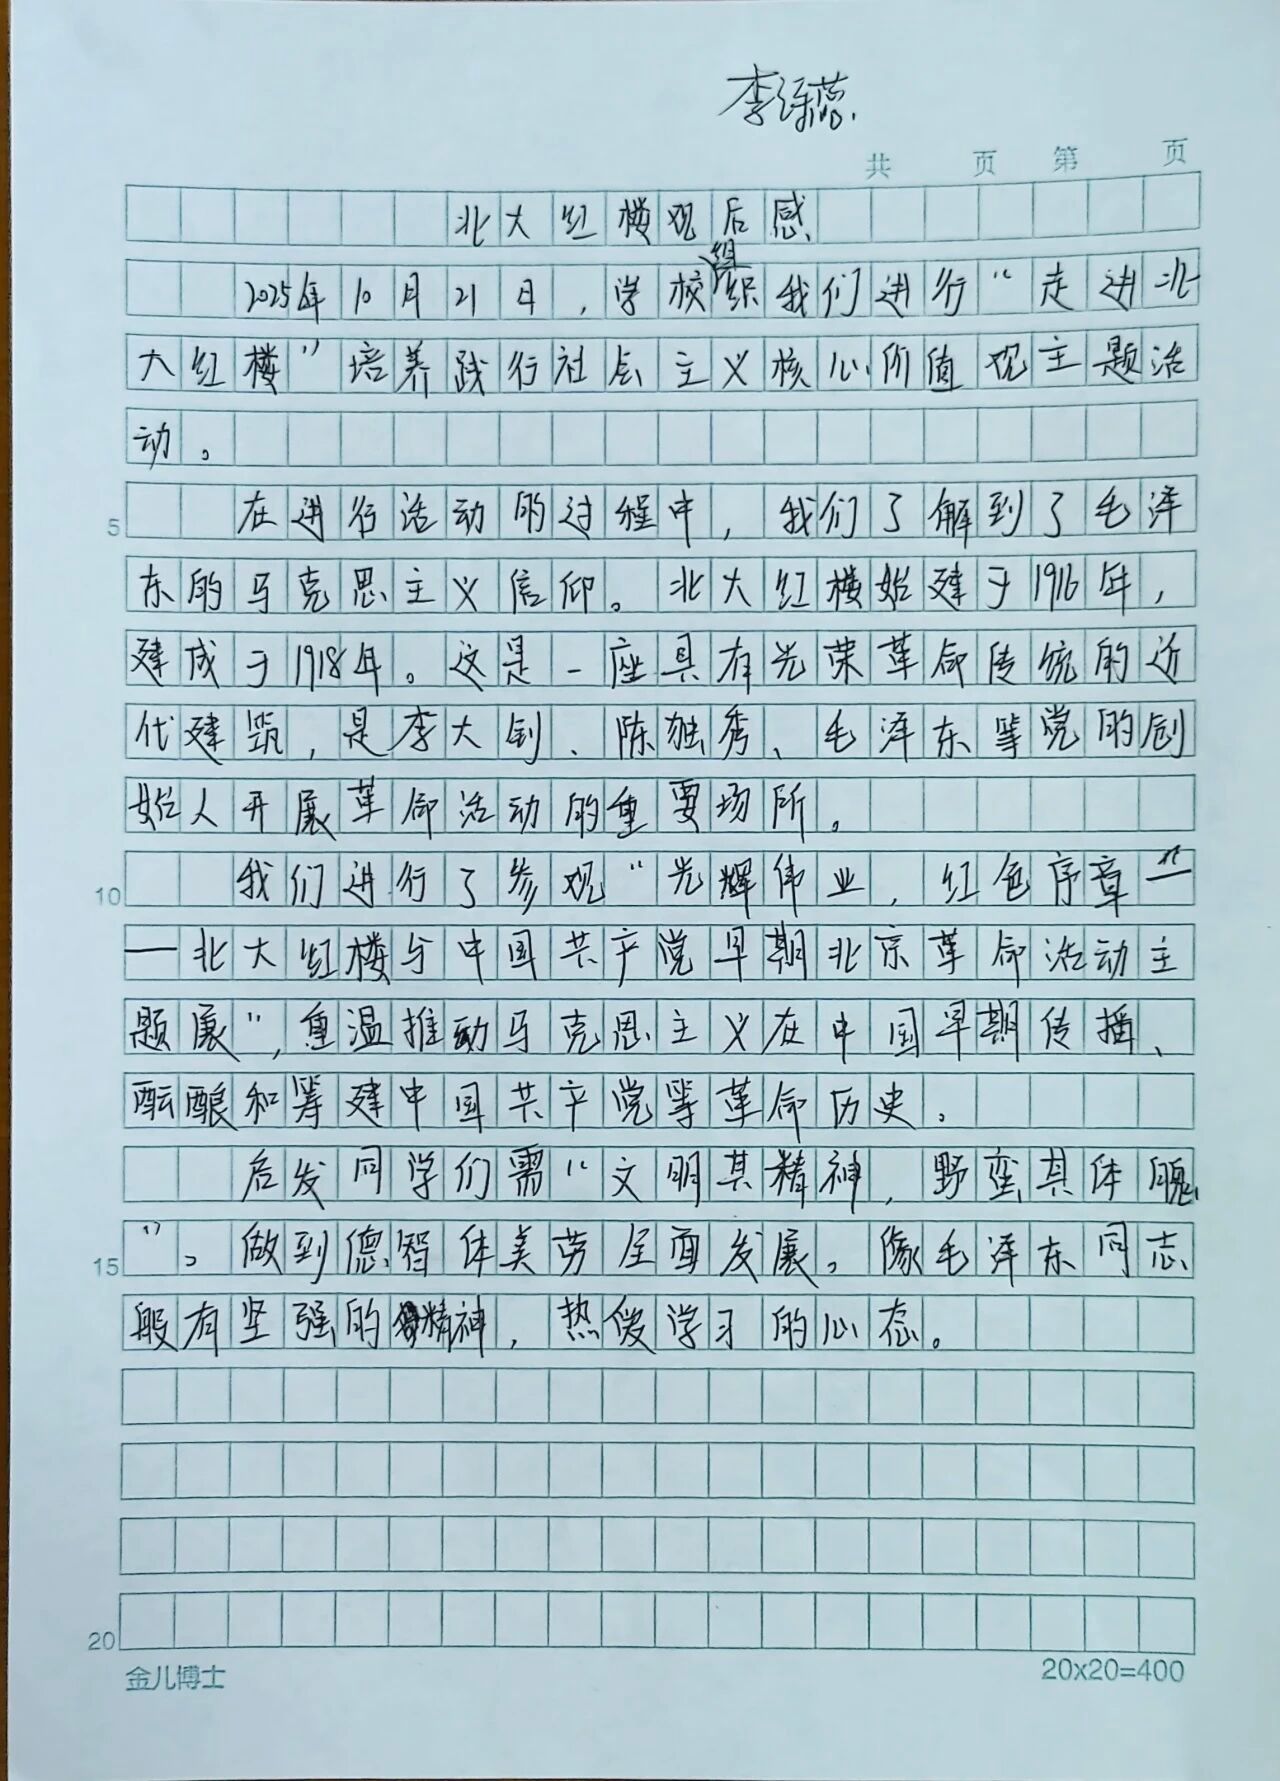 李
共 页 第 页
北大红楼观后感
2025年10月21日，学校组织我们进行“走进北
大红楼”培养践行社会主义核心价值观主题活
动。
5 在进行活动的过程中，我们了解到了毛泽
东的马克思主义信仰。北大红楼始建于1916年，
建成于1918年。这是一座具有光荣革命传统的近
代建筑，是李大钊、陈独秀、毛泽东等党的创
始人开展革命活动的重要场所。
10 我们进行了参观“光辉伟业，红色序章”—
—北大红楼与中国共产党早期北京革命活动主
题展”，重温推动马克思主义在中国早期传播、
酝酿和筹建中国共产党等革命历史。
启发同学们需“文明其精神，野蛮其体魄
15 ”。做到德智体美劳全面发展。像毛泽东同志
般有坚强的精神，热爱学习的心态。
20
金儿博士 20x20=400